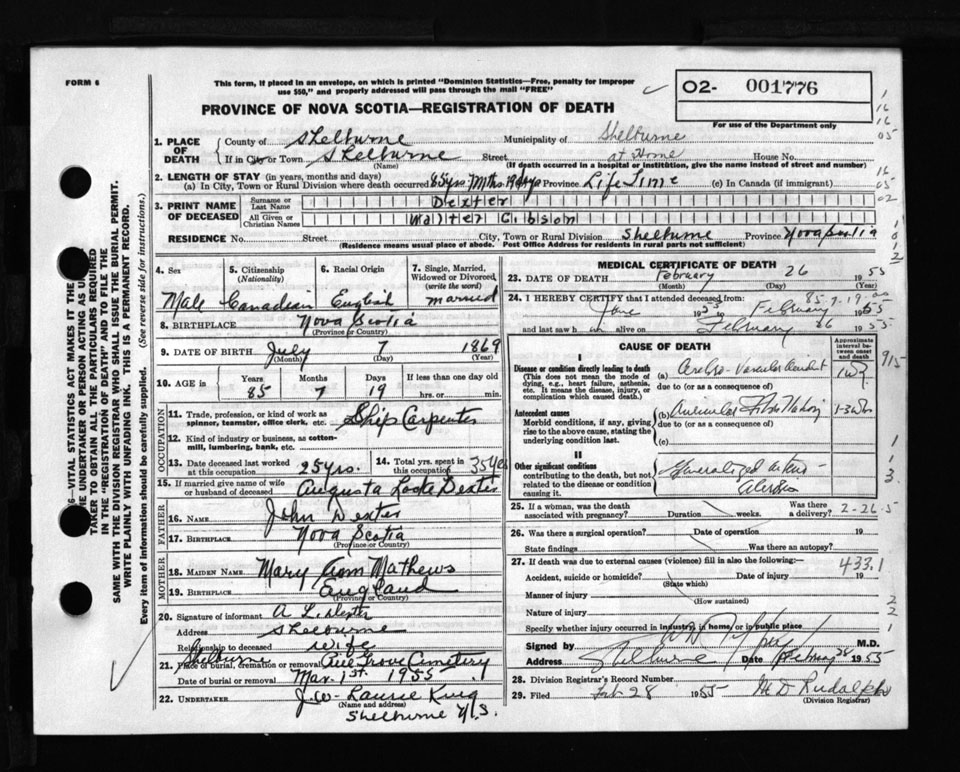 FORM 6
This form, if placed in an envelope, on which is printed "Dominion Statistics—Free, penalty for improper
use $50," and properly addressed will pass through the mail "FREE"
PROVINCE OF NOVA SCOTIA—REGISTRATION OF DEATH
02- 001776
For use of the Department only
1. PLACE OF DEATH
County of Shelburne Municipality of Shelburne
If in City or Town Shelburne Street at Home House No.
(Name) (If death occurred in a hospital or institution, give the name instead of street and number)
2. LENGTH OF STAY (in years, months and days)
(a) In City, Town or Rural Division where death occurred 85 yrs. 7 Mths. 19 days Province Life Time (c) In Canada (if immigrant)
3. PRINT NAME OF DECEASED
Surname or Last Name Dexter
All Given or Christian Names Walter Gibson
RESIDENCE No. Street City, Town or Rural Division Shelburne Province Nova Scotia
(Residence means usual place of abode. Post Office Address for residents in rural parts not sufficient)
16
16
05
16
05
02
4. Sex
Male
5. Citizenship
(Nationality)
Canadian
6. Racial Origin
English
7. Single, Married,
Widowed or Divorced
(write the word)
married
8. BIRTHPLACE Nova Scotia
(Province or Country)
9. DATE OF BIRTH July 7 1869
(Month) (Day) (Year)
10. AGE in
Years Months Days If less than one day old
85 7 19 hrs. or min.
OCCUPATION
11. Trade, profession, or kind of work as
spinner, teamster, office clerk, etc. Ship Carpenter
12. Kind of industry or business, as cotton-
mill, lumbering, bank, etc.
13. Date deceased last worked
at this occupation 25 yrs.
14. Total yrs. spent in
this occupation 35 yrs
15. If married give name of wife
or husband of deceased Augusta Locke Dexter
FATHER
16. NAME John Dexter
17. BIRTHPLACE Nova Scotia
(Province or Country)
MOTHER
18. MAIDEN NAME Mary Ann Mathews
19. BIRTHPLACE England
(Province or Country)
20. Signature of informant A L. Dexter
Address Shelburne
Relationship to deceased wife
Shelburne
21. Place of burial, cremation or removal Grove Cemetery
Date of burial or removal Mar. 1st 1955
22. UNDERTAKER J.W. Laurie King
(Name and address)
Shelburne N.S.
MEDICAL CERTIFICATE OF DEATH
23. DATE OF DEATH February 26 1955
(Month) (Day)
24. I HEREBY CERTIFY that I attended deceased from 85-7-19
June 1955 to February 1955
and last saw h alive on February 26 1955
CAUSE OF DEATH
Approximate interval between onset and death
I
Disease or condition directly leading to death
(This does not mean the mode of
dying, e.g., heart failure, asthenia,
etc. It means the disease, injury, or
complication which caused death.)
(a) Cerebro-Vascular Accident
due to (or as a consequence of)
Antecedent causes
Morbid conditions, if any, giving
rise to the above cause, stating the
underlying condition last.
(b) Auricular Fibrillation
due to (or as a consequence of)
(c)
II
Other significant conditions
contributing to the death, but not
related to the disease or condition
causing it.
Generalized Arterio-
sclerosis
25. If a woman, was the death
associated with pregnancy? Duration weeks. Was there
a delivery? 2-26-5
26. Was there a surgical operation? Date of operation 19
State findings Was there an autopsy?
27. If death was due to external causes (violence) fill in also the following:— 433.1
Accident, suicide or homicide? Date of injury 19
(State which)
Manner of injury
(How sustained)
Nature of injury
Specify whether injury occurred in industry, in home/or in public place
Signed by M.D.
Address Shelburne Date February 28 1955
28. Division Registrar's Record Number
29. Filed Feb 28 1955 M D Rudolph
(Division Registrar)
6—VITAL STATISTICS ACT MAKES IT THE DUTY
THE UNDERTAKER OR PERSON ACTING AS UNDER-
TAKER TO OBTAIN ALL THE PARTICULARS REQUIRED
IN THE "REGISTRATION OF DEATH" AND TO FILE THE
SAME WITH THE DIVISION REGISTRAR WHO SHALL ISSUE THE BURIAL PERMIT.
WRITE PLAINLY WITH UNFADING INK. THIS IS A PERMANENT RECORD.
Every item of information should be carefully supplied. (See reverse side for instructions.)